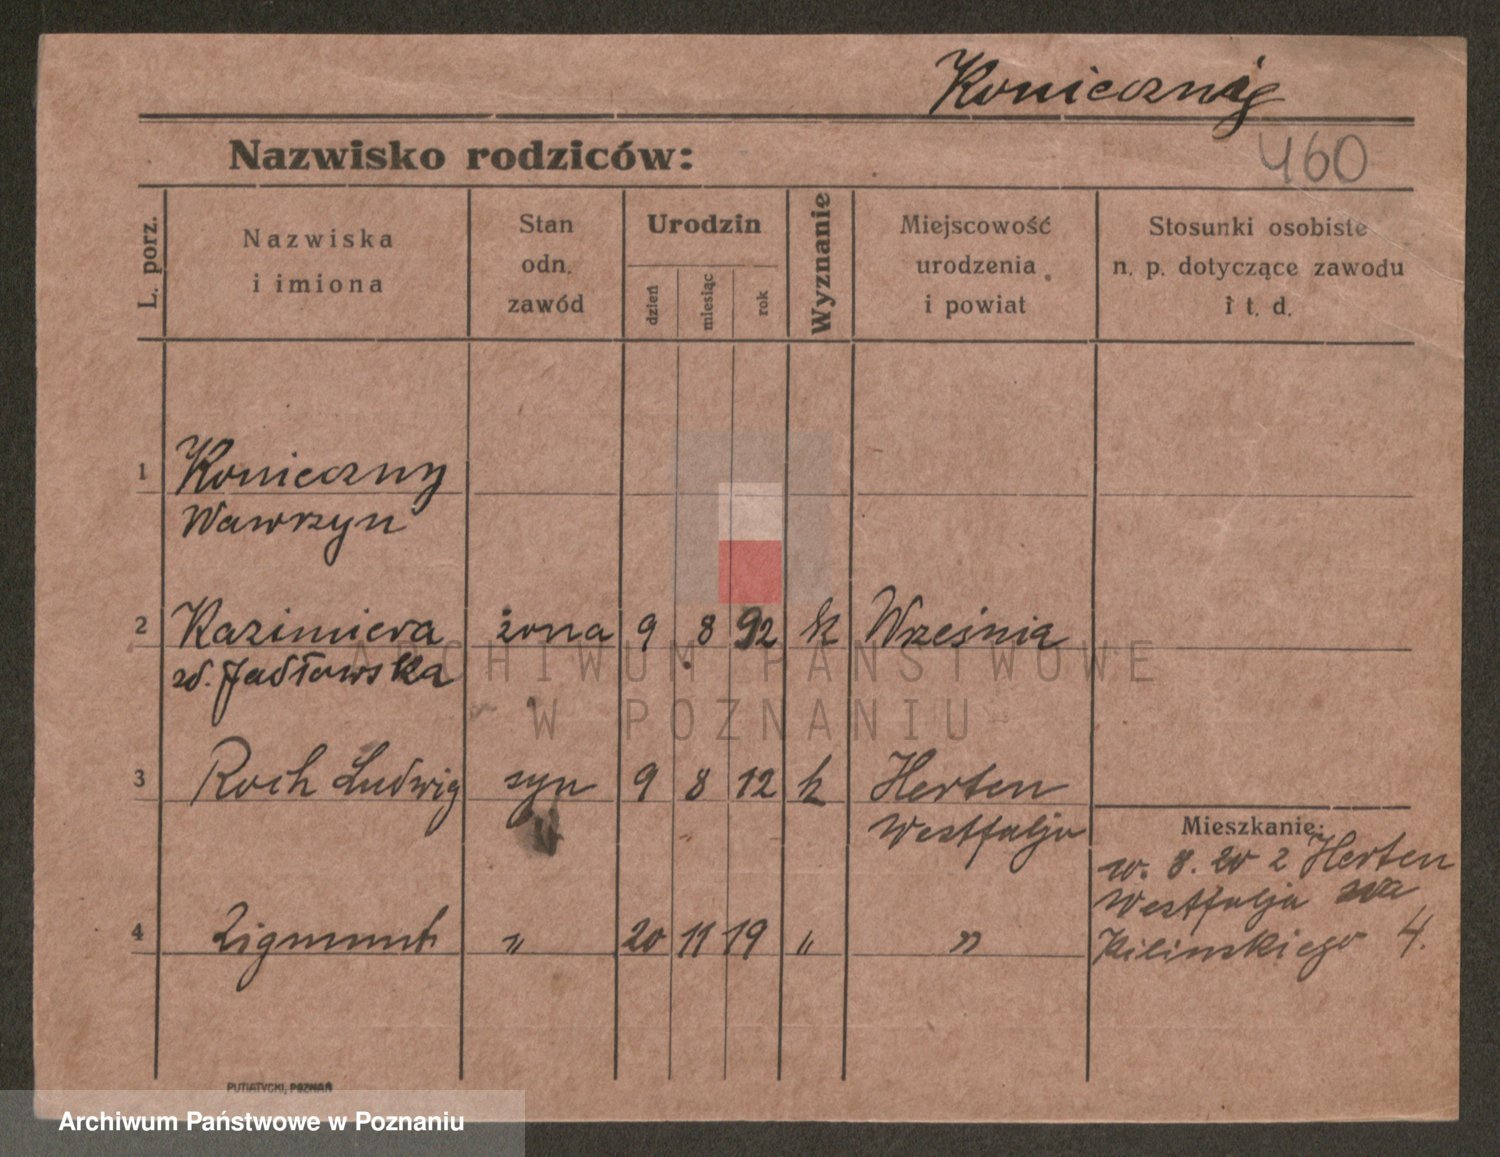 Konieczny
Nazwisko rodziców:
460
L. porz.
Nazwiska
i imiona
Stan
odn.
zawód
Urodzin
dzień
miesiąc
rok
Wyznanie
Miejscowość
urodzenia
i powiat
Stosunki osobiste
n. p. dotyczące zawodu
i t. d.
1 Konieczny
Wawrzyn
2 Kazimiera żona 9 8 92 k Września
zd. Jadłowska
3 Roch Ludwig syn 9 8 12 k Herten
Westfalja
4 Zigmunt " 20 11 19 " "
Mieszkanie:
w. 8. 20 z Herten
Westfalja
Kilinskiego 4.
ARCHIWUM PAŃSTWOWE
W POZNANIU
PUTIATYCKI, POZNAŃ
Archiwum Państwowe w Poznaniu